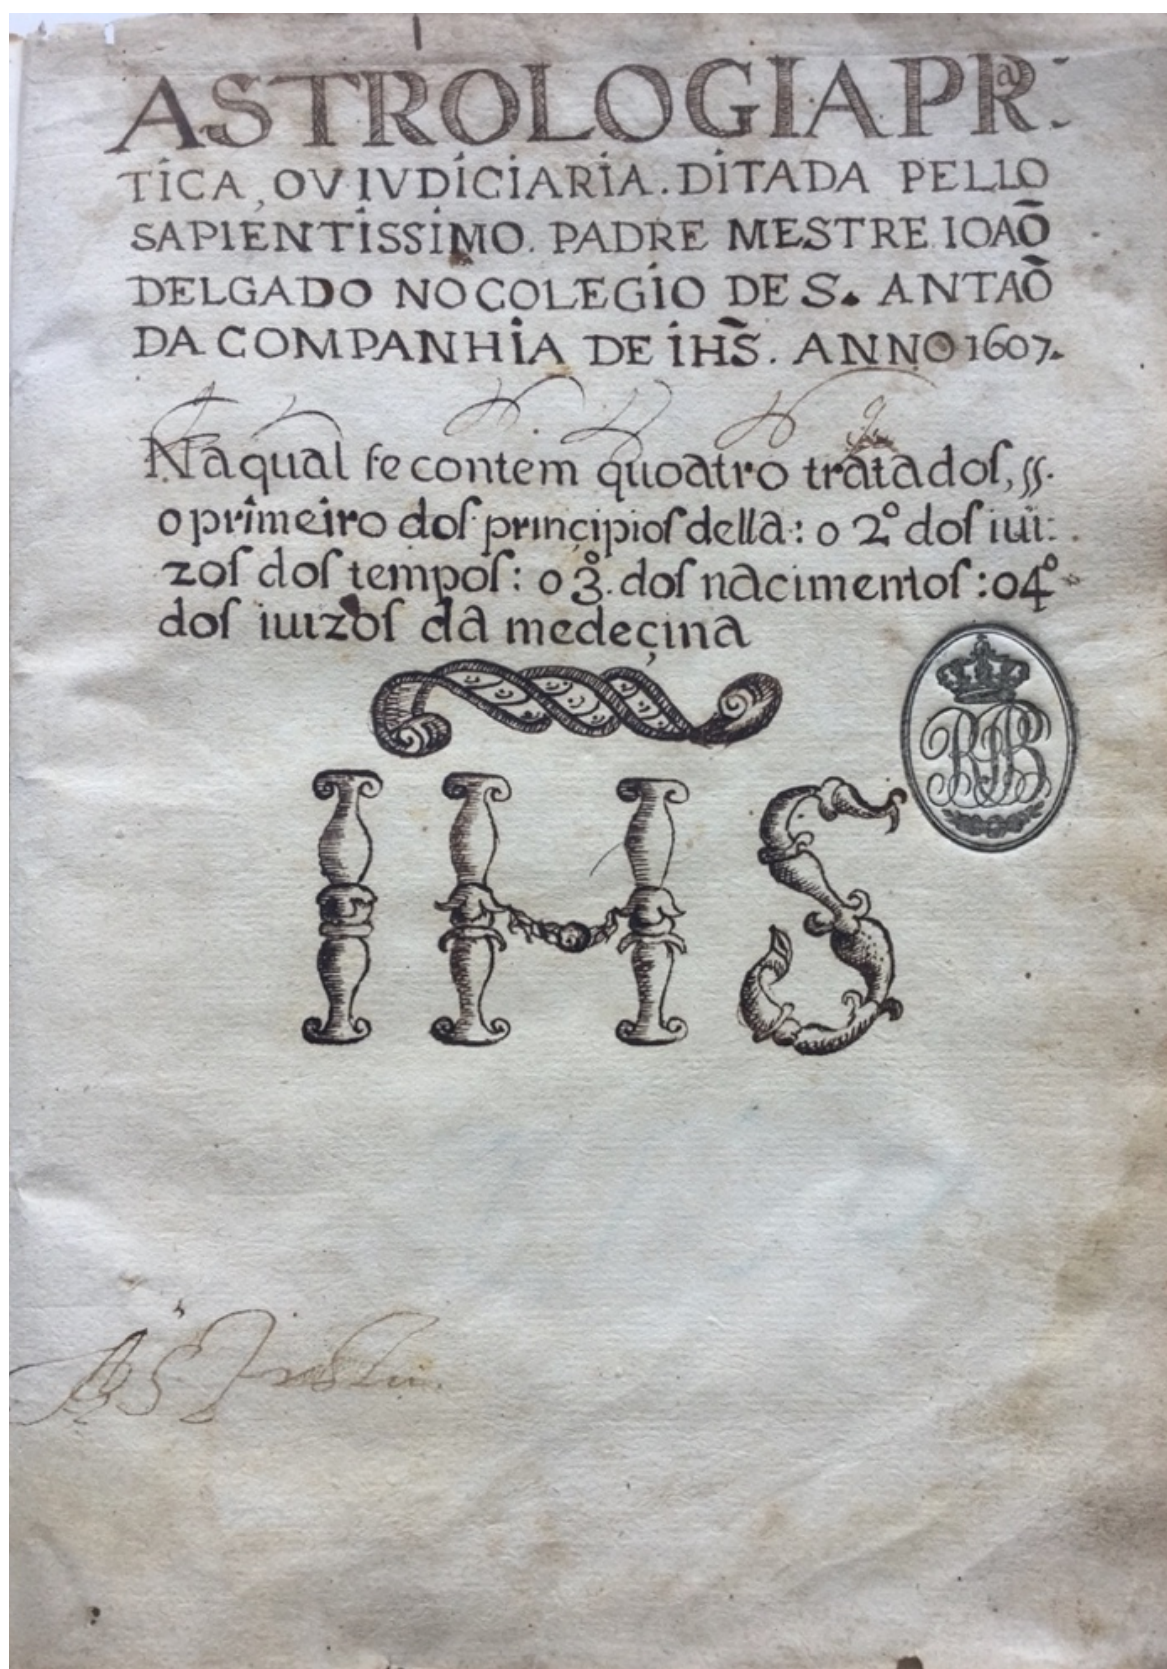 ASTROLOGIA PRᵃ:
TICA, OV IVDICIARIA. DITADA PELLO
SAPIENTISSIMO. PADRE MESTRE IOAÕ
DELGADO NO COLEGIO DE S. ANTAÕ
DA COMPANHIA DE IHS̃. ANNO 1607.
Na qual ſe contem quoatro tratadoſ, ſſ.
o primeiro doſ principioſ della: o 2º doſ iui:
zoſ doſ tempoſ: o 3º. doſ nacimentoſ: o 4º
doſ iuizoſ da medeçina
IHS